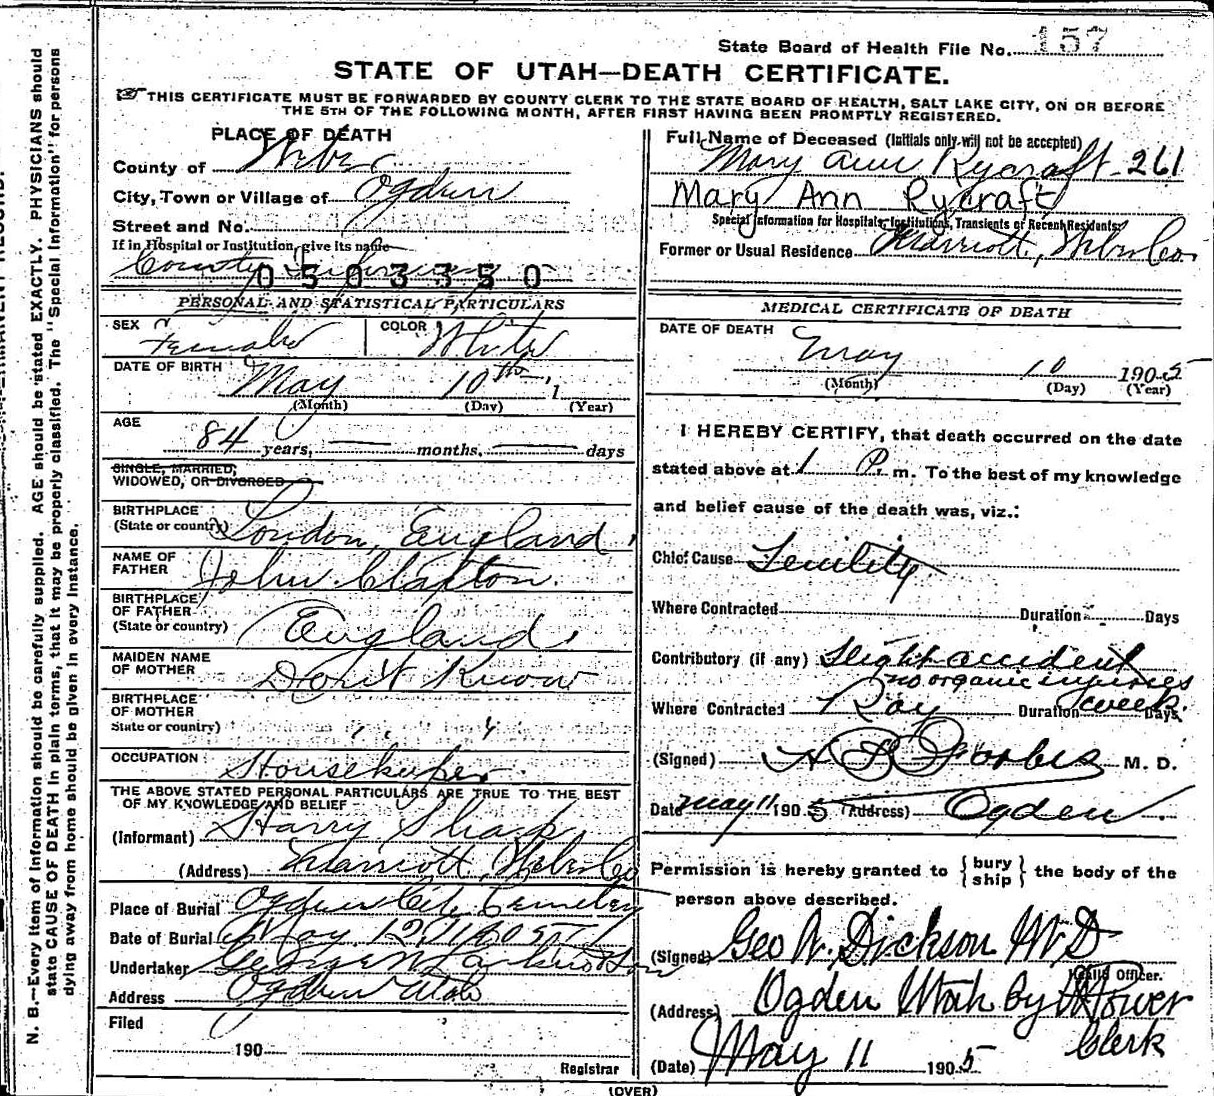 State Board of Health File No. 157
STATE OF UTAH—DEATH CERTIFICATE.
THIS CERTIFICATE MUST BE FORWARDED BY COUNTY CLERK TO THE STATE BOARD OF HEALTH, SALT LAKE CITY, ON OR BEFORE
THE 5TH OF THE FOLLOWING MONTH, AFTER FIRST HAVING BEEN PROMPTLY REGISTERED.
N. B.—Every item of information should be carefully supplied. AGE should be stated EXACTLY. PHYSICIANS should
state CAUSE OF DEATH in plain terms, that it may be properly classified. The "Special Information" for persons
dying away from home should be given in every instance.
PLACE OF DEATH
County of Weber
City, Town or Village of Ogden
Street and No.
If in Hospital or Institution, give its name
County Infirmary
0503350
PERSONAL AND STATISTICAL PARTICULARS
SEX Female COLOR White
DATE OF BIRTH May 10th
(Month) (Day) (Year)
AGE
84 years, months, days
SINGLE, MARRIED,
WIDOWED, OR DIVORCED
BIRTHPLACE
(State or country) London, England
NAME OF
FATHER John Claxton
BIRTHPLACE
OF FATHER
(State or country) England
MAIDEN NAME
OF MOTHER Don't Know
BIRTHPLACE
OF MOTHER
State or country) " "
OCCUPATION Housekeeper
THE ABOVE STATED PERSONAL PARTICULARS ARE TRUE TO THE BEST
OF MY KNOWLEDGE AND BELIEF
(Informant) Harry Sharp
(Address) Marriott, Weber Co
Place of Burial Ogden City Cemetery
Date of Burial May 12, 1905
Undertaker
Address Ogden Utah
Filed
190
Registrar
Full Name of Deceased (Initials only will not be accepted)
Mary Ann Rycraft - 261
Mary Ann Rycraft
Special Information for Hospitals, Institutions, Transients or Recent Residents.
Former or Usual Residence Marriott, Weber Co.
MEDICAL CERTIFICATE OF DEATH
DATE OF DEATH
May 10 1905
(Month) (Day) (Year)
I HEREBY CERTIFY, that death occurred on the date
stated above at 1 P. m. To the best of my knowledge
and belief cause of the death was, viz.:
Chief Cause Senility
Where Contracted Duration Days
Contributory (if any) Slight accident
no organic injuries
Where Contracted Roy Duration 1 week Days
(Signed) Forbes M. D.
Date May 11 1905 (Address) Ogden
Permission is hereby granted to { bury ship } the body of the
person above described.
(Signed) Geo W. Dickson M D
Health Officer.
(Address) Ogden Utah By Power
Clerk
(Date) May 11 1905
(OVER)